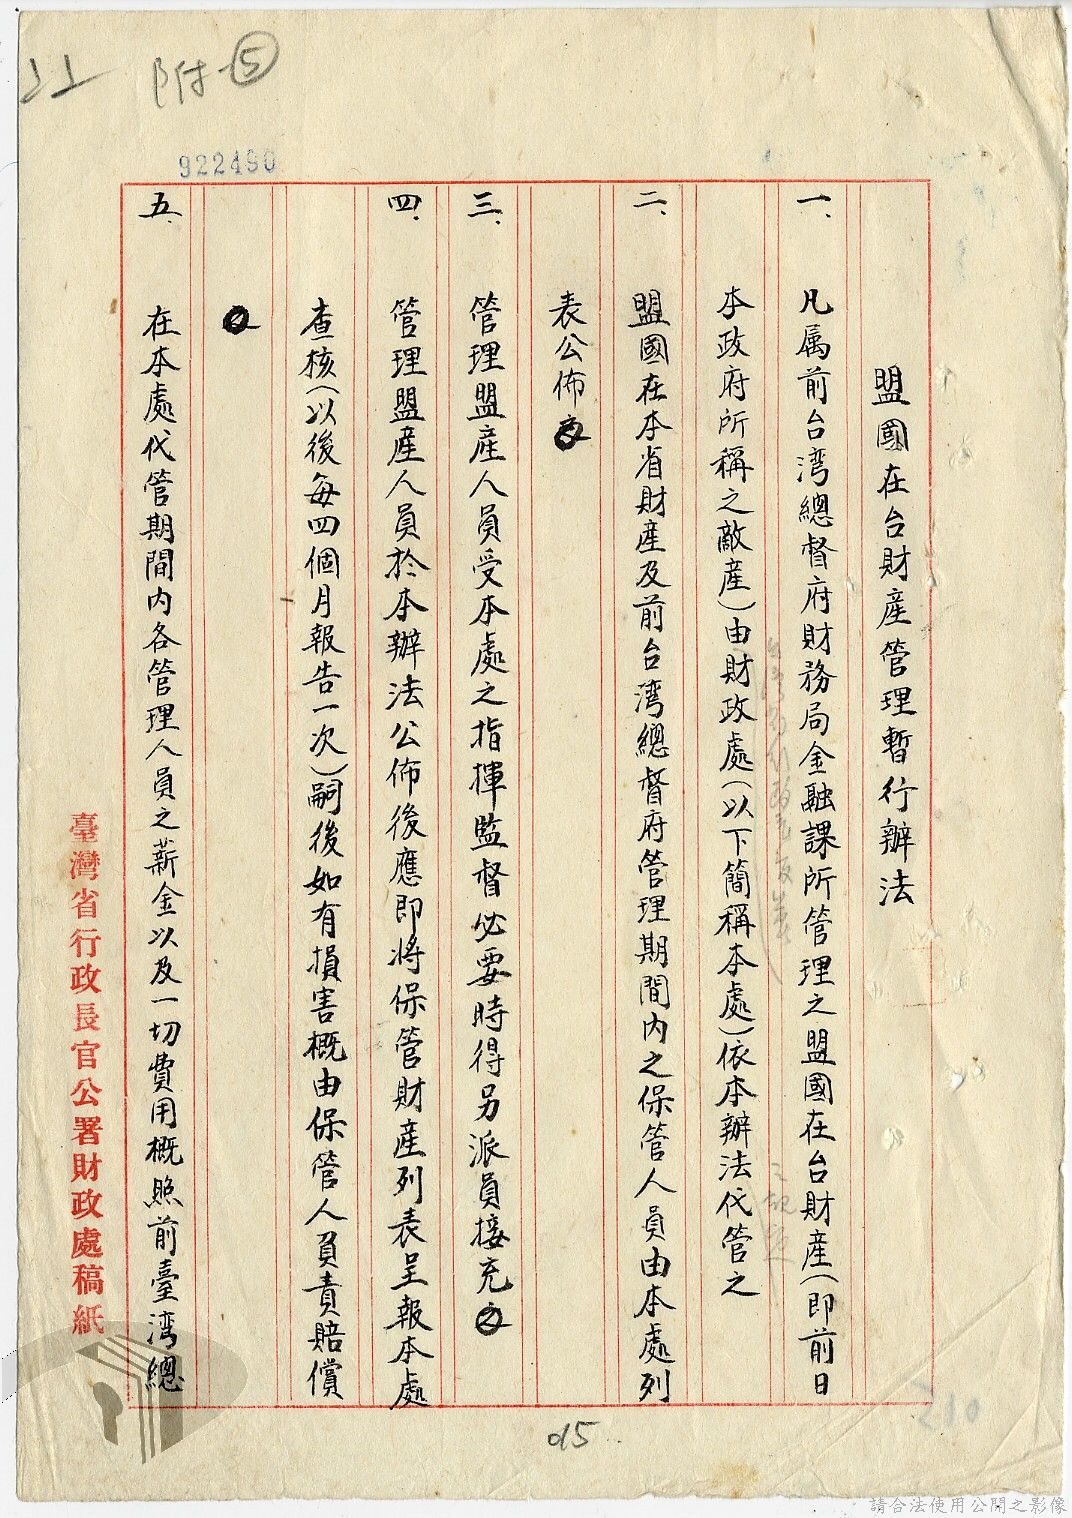 附⑤
922490
盟國在台財產管理暫行辦法
一、凡属前台湾總督府財務局金融課所管理之盟國在台財產(即前日
本政府所稱之敵產)由財政處(以下簡稱本處)依本辦法代管之
二、盟國在本省財產及前台湾總督府管理期間內之保管人員由本處列
表公佈
三、管理盟產人員受本處之指揮監督必要時得另派員接充
四、管理盟產人員於本辦法公佈後應即將保管財產列表呈報本處
查核(以後每四個月報告一次)嗣後如有損害概由保管人員責賠償
五、在本處代管期間內各管理人員之薪金以及一切費用概照前臺湾總
臺灣省行政長官公署財政處稿紙
015
210
請合法使用公開之影像